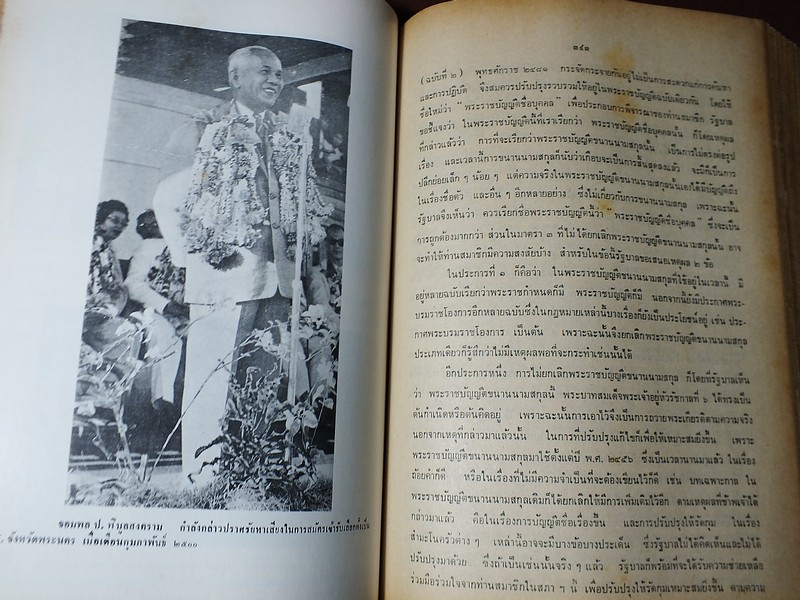 จอมพล ป. พิบูลสงคราม กำลังกล่าวปราศรัยหาเสียงในการสมัครเข้ารับเลือกตั้งใน
จ. จังหวัดพระนคร เมื่อเดือนกุมภาพันธ์ ๒๕๐๐
๓๔๑
(ฉบับที่ ๒) พุทธศักราช ๒๔๘๑ กระจัดกระจายกันอยู่ไม่เป็นการสะดวกแก่การค้นหา
และการปฏิบัติ จึงสมควรปรับปรุงรวบรวมให้อยู่ในพระราชบัญญัติฉบับเดียวกัน โดยใช้
ชื่อใหม่ว่า "พระราชบัญญัติชื่อบุคคล" เพื่อประกอบการพิจารณาของท่านสมาชิก รัฐบาล
ขอชี้แจงว่า ในพระราชบัญญัตินี้ที่เราเรียกว่า พระราชบัญญัติชื่อบุคคลนั้น ก็โดยเหตุผล
ที่กล่าวแล้วว่า การที่จะเรียกว่าพระราชบัญญัติขนานนามสกุลนั้น เป็นการไม่ตรงต่อรูป
เรื่อง และเวลานี้การขนานนามสกุลก็นับว่าเกือบจะเป็นการสิ้นสุดลงแล้ว จะมีก็เป็นการ
ปลีกย่อยเล็ก ๆ น้อย ๆ แต่ความจริงในพระราชบัญญัติขนานนามสกุลนั้นเองได้มีบัญญัติถึง
ในเรื่องชื่อตัว และอื่น ๆ อีกหลายอย่าง ซึ่งไม่เกี่ยวกับการขนานนามสกุล เพราะฉะนั้น
รัฐบาลจึงเห็นว่า ควรเรียกชื่อพระราชบัญญัตินี้ว่า "พระราชบัญญัติชื่อบุคคล" ซึ่งจะเป็น
การถูกต้องมากกว่า ส่วนในมาตรา ๓ ที่ไม่ได้ยกเลิกพระราชบัญญัติขนานนามสกุลนั้น อาจ
จะทำให้ท่านสมาชิกมีความสงสัยบ้าง สำหรับในข้อนี้รัฐบาลขอเสนอเหตุผล ๒ ข้อ
ในประการที่ ๑ ก็คือว่า ในพระราชบัญญัติขนานนามสกุลที่ใช้อยู่ในเวลานี้ มี
อยู่หลายฉบับเรียกว่าพระราชกำหนดก็มี พระราชบัญญัติก็มี นอกจากนี้ยังมีประกาศพระ-
บรมราชโองการอีกหลายฉบับซึ่งในกฎหมายเหล่านี้บางเรื่องก็ยังเป็นประโยชน์อยู่ เช่น ประ-
กาศพระบรมราชโองการ เป็นต้น เพราะฉะนั้นจึงยกเลิกพระราชบัญญัติขนานนามสกุล
ประเภทเดียวก็รู้สึกว่าไม่มีเหตุผลพอที่จะกระทำเช่นนั้นได้
อีกประการหนึ่ง การไม่ยกเลิกพระราชบัญญัติขนานนามสกุล ก็โดยที่รัฐบาลเห็น
ว่า พระราชบัญญัติขนานนามสกุลนี้ พระบาทสมเด็จพระเจ้าอยู่หัวรัชกาลที่ ๖ ได้ทรงเป็น
ต้นกำเนิดหรือต้นคิดอยู่ เพราะฉะนั้นการเอาไว้จึงเป็นการถวายพระเกียรติตามความจริง
นอกจากเหตุที่กล่าวมาแล้วนั้น ในการที่ปรับปรุงแก้ไขก็เพื่อให้เหมาะสมยิ่งขึ้น เพราะ
พระราชบัญญัติขนานนามสกุลมาใช้ตั้งแต่ปี พ.ศ. ๒๔๕๖ ซึ่งเป็นเวลานานมาแล้ว ในเรื่อง
ถ้อยคำก็ดี หรือในเรื่องที่ไม่มีความจำเป็นที่จะต้องเขียนไว้ก็ดี เช่น บทเฉพาะกาล ใน
พระราชบัญญัติขนานนามสกุลเดิมก็ได้ยกเลิกให้มีการเพิ่มเติมไว้อีก ตามเหตุผลที่ข้าพเจ้าได้
กล่าวมาแล้ว คือในเรื่องการบัญญัติชื่อเรื่องขึ้น และการปรับปรุงให้รัดกุม ในเรื่อง
สำมะโนครัวต่าง ๆ เหล่านี้อาจจะมีบางข้อบางประเด็น ซึ่งรัฐบาลไม่ได้คิดเห็นและไม่ได้
ปรับปรุงมาด้วย ซึ่งถ้าเป็นเช่นนั้นจริง ๆ แล้ว รัฐบาลก็พร้อมที่จะได้รับความช่วยเหลือ
ร่วมมือร่วมใจจากท่านสมาชิกในสภา ๆ นี้ เพื่อปรับปรุงให้รัดกุมเหมาะสมยิ่งขึ้น ตามความ